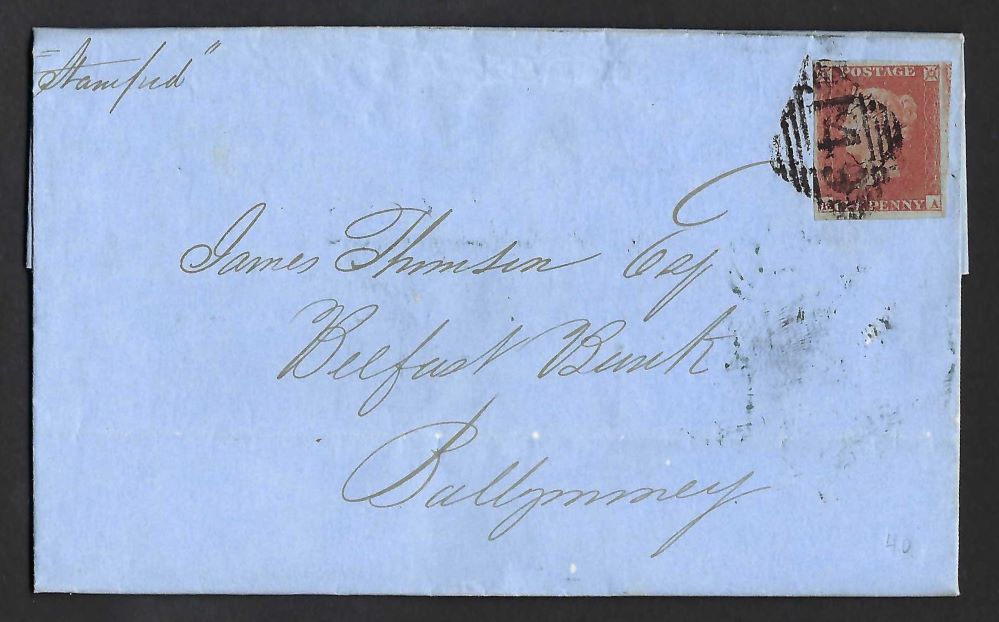 "Stamped"
POSTAGE
PENNY
A
James Thomson Esqr
Belfast Bank
Ballymoney
40